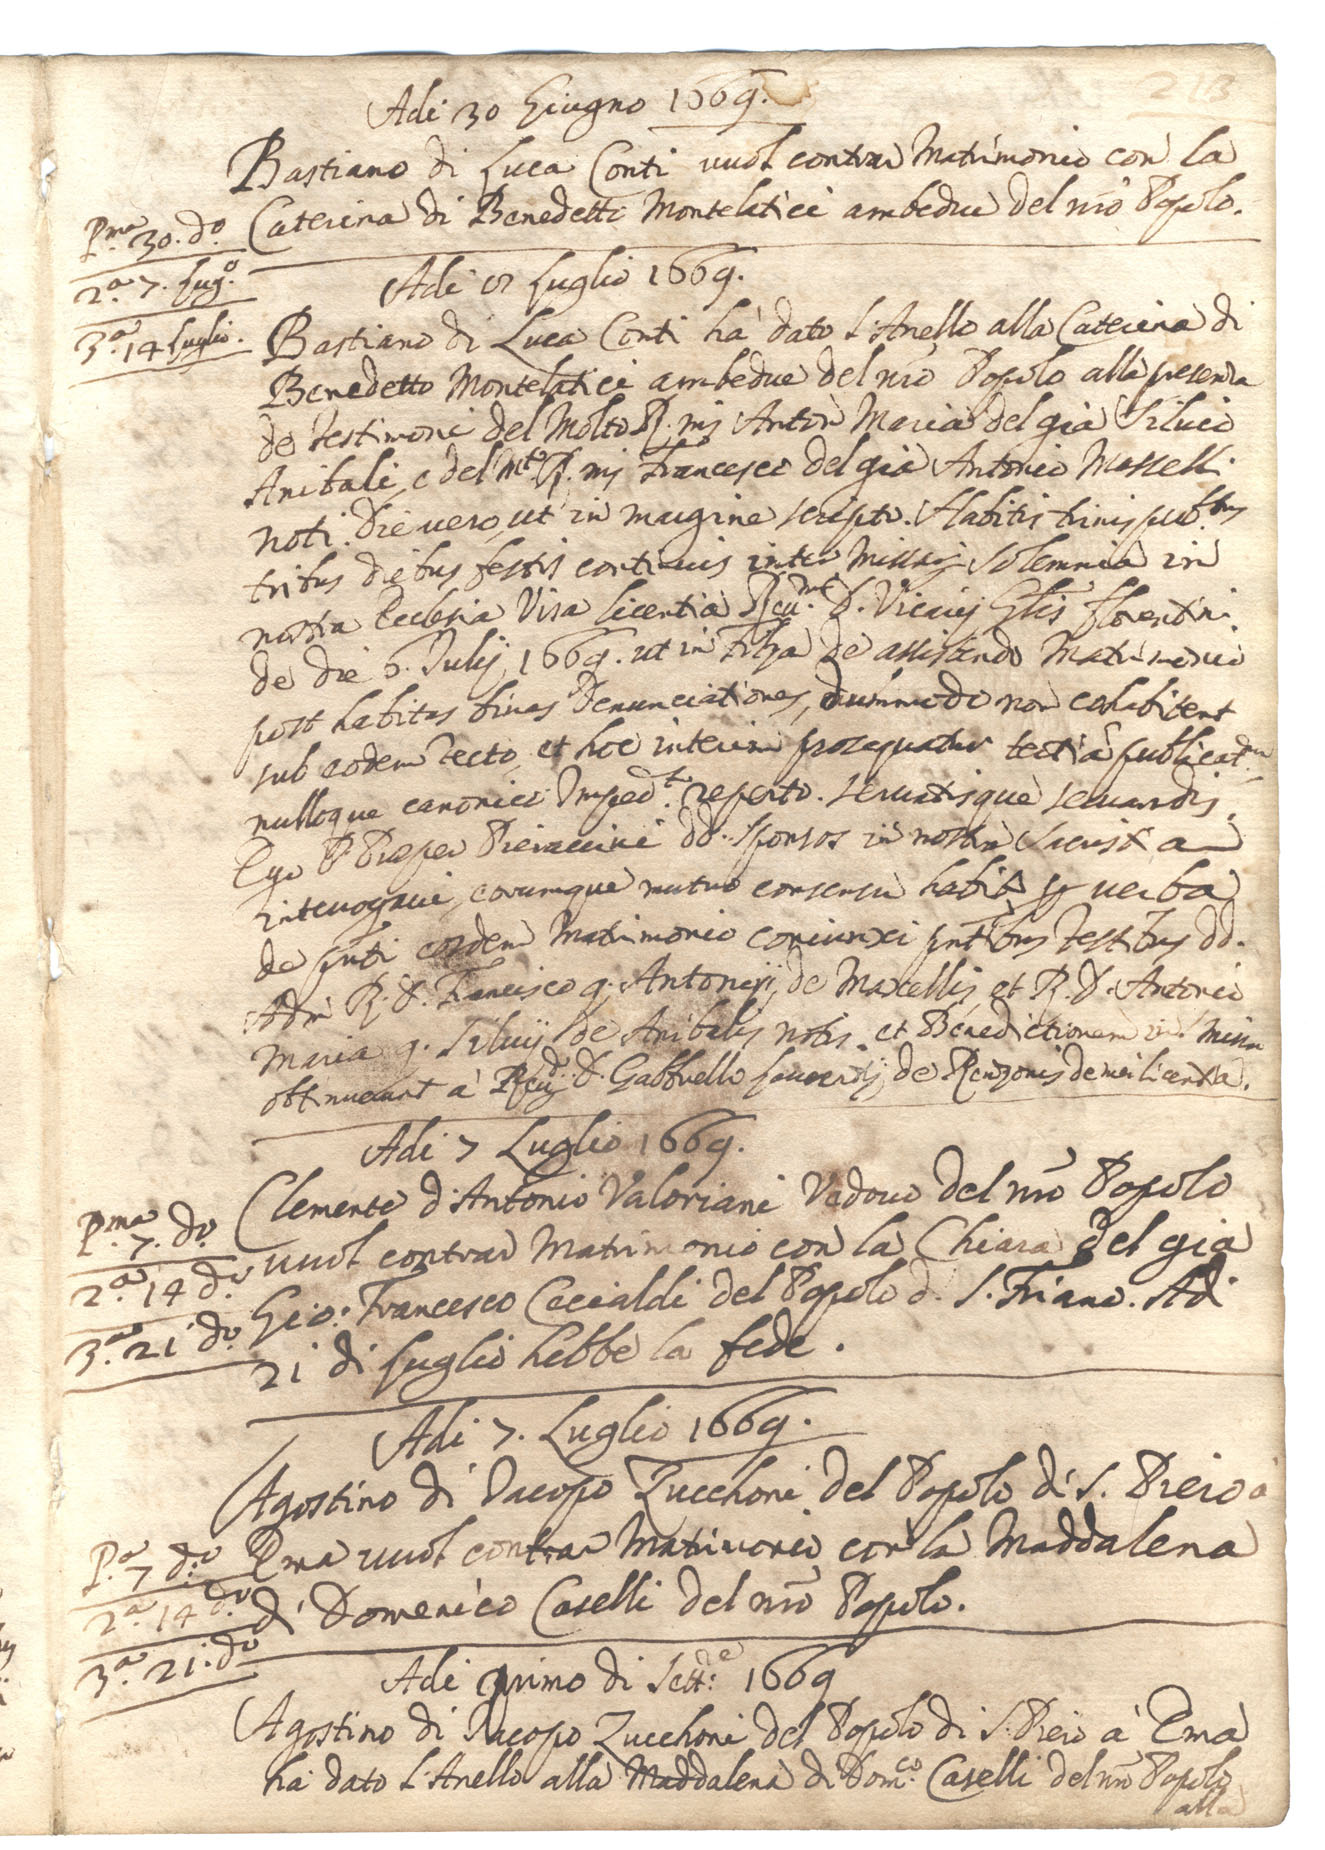 213
Adi 30 Giugno 1669.
Bastiano di Luca Conti vuol contrar Matrimonio con la
Caterina di Benedetto Montelatici ambedue del nrõ Popolo.
P.ma 30. d.o
2.a 7. Lug.o
3.a 14 Luglio.
Adi Luglio 1669.
Bastiano di Luca Conti ha dato l'Anello alla Caterina di
Benedetto Montelatici ambedue del nrõ Popolo alla presenza
de Testimoni del Molto R. mj Anton Maria del già Silvio
Anibali, e del m.to R. mj Francesco del già Antonio Masselli
noti. Die vero, ut in margine scripto. Habitis trinis pub.bus
tribus diebus festis continuis inter Missar solemnia in
nostra Ecclesia Visa licentia D. Vicarij Glis florentin.
de die 6. Julij 1669. ut in Filza de assistendo Matrimonio
post habitas binas Denunciationes, dummodo non cohabitent
sub eodem Tecto, et hoc interim prosequatur tertia publicat.
nulloque canonico Imped.to reperto. servatisque servandis
Ego P. Prosper Pieraccini dd. sponsos in nostra Sacristia
interrogavi, eorumque mutuo consensu habito p verba
de pnti eosdem Matrimonio coniunxi pntibus Testibus dd.
Adm R. D. Francisco q. Antonij de Marcellis et R. D. Antonio
Maria q. Silvij de Anibalis notis. et Benedictionem in Missa
obtinuerunt à D. Gabbriello de Renzonis de mei licentia.
Adi 7 Luglio 1669.
Clemente d'Antonio Valoriani Vedovo del nrõ Popolo
vuol contrar Matrimonio con la Chiara del già
Gio: Francesco Cecialdi del Popolo d. S. Friano. Adi
21 di Luglio hebbe la fede.
P.ma 7. d.o
2.a 14 d.o
3.a 21 d.o
Adi 7. Luglio 1669.
Agostino di Jacopo Zucchoni del Popolo di S. Piero à
Ema vuol contrar Matrimonio con la Maddalena
di Domenico Caselli del nrõ Popolo.
P.a 7 d.o
2.a 14 d.o
3.a 21. d.o
Adi primo di Sett.e 1669
Agostino di Jacopo Zucchoni del Popolo di S. Piero à Ema
ha dato l'Anello alla Maddalena di Dom.co Caselli del nrõ Popolo
alla